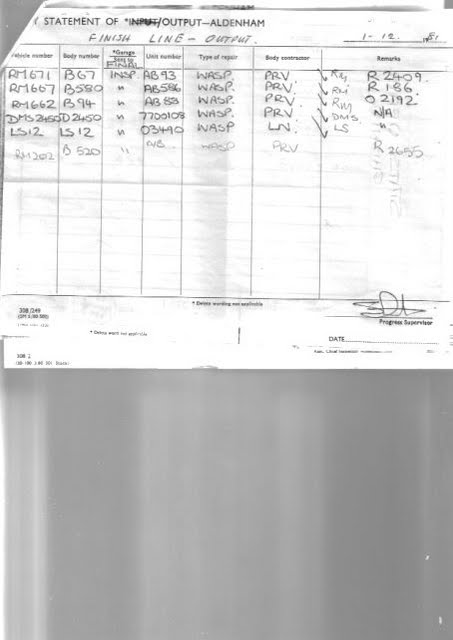 STATEMENT OF *INPUT/OUTPUT—ALDENHAM
FINISH LINE – OUTPUT. 1-12. 1981
Vehicle number Body number *Garage Sent to FINAL Unit number Type of repair Body contractor Remarks
RM671 B67 INSP. AB93 WASP. PRV. RM R2409.
RM667 B580 " AB586 WASP. PRV. RM R186.
RM662 B94 " AB88 WASP. PRV. RM O2192.
DMS2450 D2450 " 7700108 WASP. PRV. DMS N/A
LS12 LS12 " 03490 WASP LN. LS "
RM202 B520 " N/B WASP PRV R2655
* Delete wording not applicable
308/249
Progress Supervisor
* Delete word not applicable
DATE
308